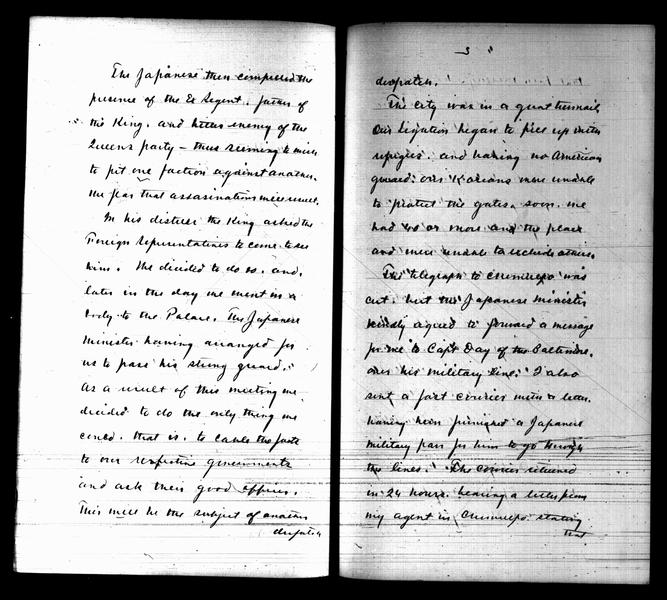 The Japanese then compelled the
presence of the Ex Regent, father of
the King, and bitter enemy of the
Queens party - thus seeming to mean
to pit one faction against another.
We fear that assasinations will result.
In his distress the King asked the
Foreign Representatives to come to see
him. We decided to do so, and,
later in the day we went in a
body to the Palace. The Japanese
Minister having arranged for
us to pass his strong guard.
As a result of this meeting we
decided to do the only thing we
could, that is, to cable the facts
to our respective governments
and ask their good offices.
This will be the subject of another
despatch
3
despatch.
The city was in a great turmoil,
Our Legation began to fill up with
refugees, and having no American
guard: our Koreans were unable
to protect the gates. soon we
had 40 or more and the place
and were unable to exclude others.
The telegraph to Chemulpo was
cut, but the Japanese minister
kindly agreed to forward a message
for me to Capt Day of the Baltimore,
over his military line. I also
sent a fast courier with a letter,
having been furnished a Japanese
military pass for him to go through
the lines. The courier returned
in 24 hours, bearing a letter from
my agent in Chemulpo, stating
that